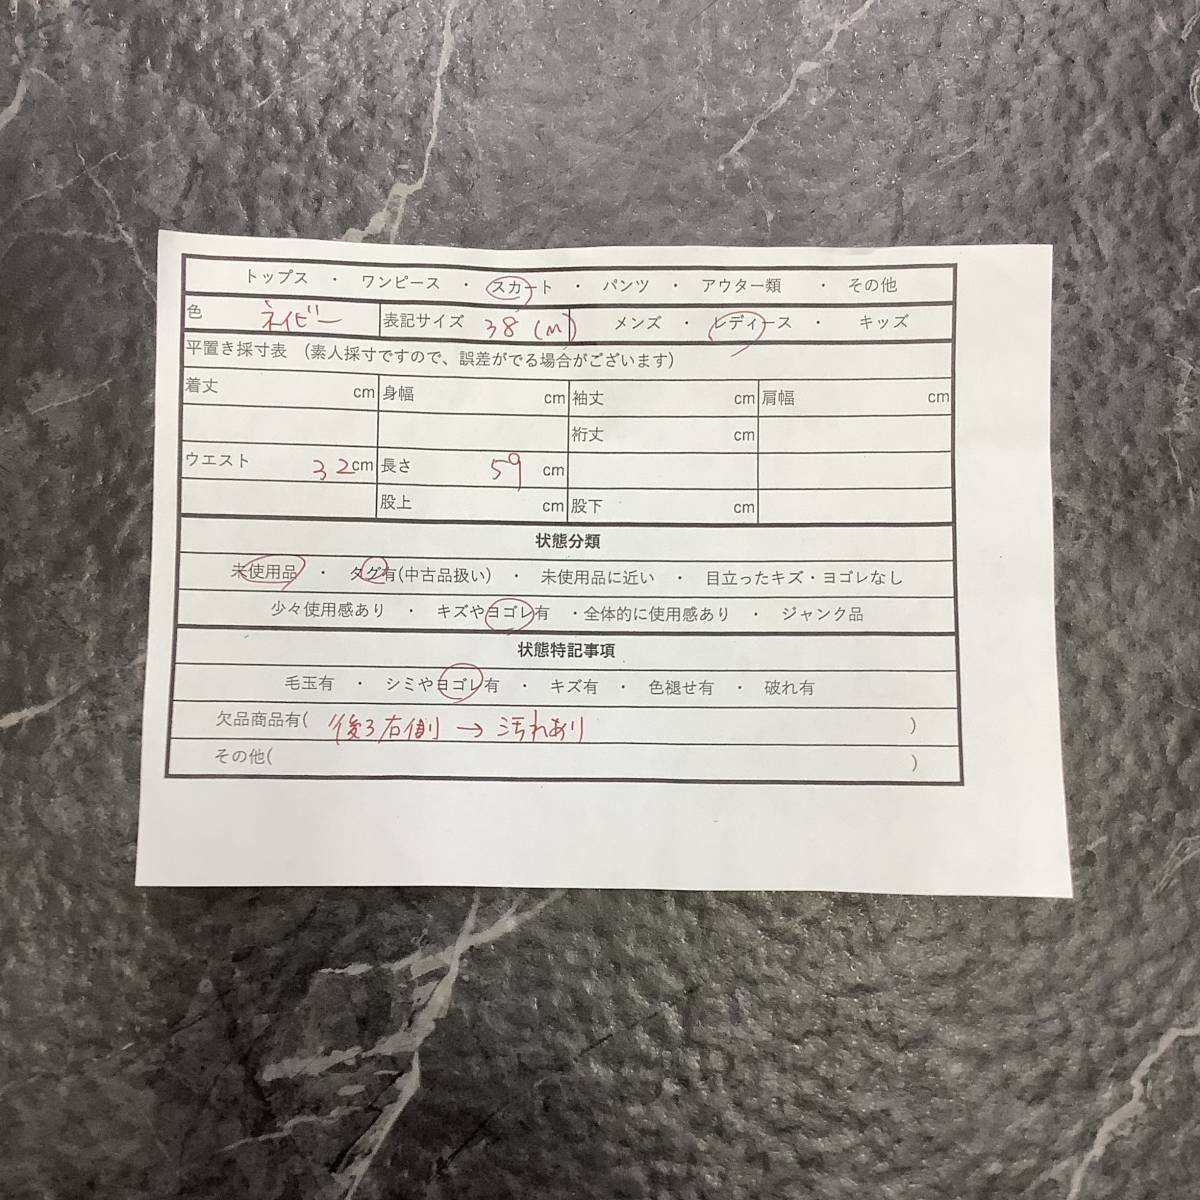 トップス ・ ワンピース ・ スカート ・ パンツ ・ アウター類 ・ その他
色 ネイビー 表記サイズ 38(M) メンズ ・ レディース ・ キッズ
平置き採寸表 (素人採寸ですので、誤差がでる場合がございます)
着丈 cm 身幅 cm 袖丈 cm 肩幅 cm
裄丈 cm
ウエスト 32cm 長さ 59 cm
股上 cm 股下 cm
状態分類
未使用品 ・ タグ有(中古品扱い) ・ 未使用品に近い ・ 目立ったキズ・ヨゴレなし
少々使用感あり ・ キズやヨゴレ有 ・全体的に使用感あり ・ ジャンク品
状態特記事項
毛玉有 ・ シミやヨゴレ有 ・ キズ有 ・ 色褪せ有 ・ 破れ有
欠品商品有( 後ろ右側 → 汚れあり )
その他( )